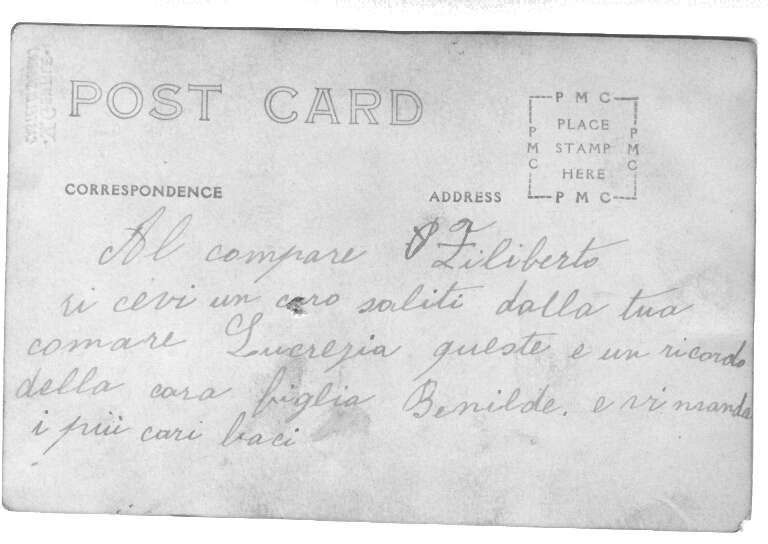 POST CARD
P M C
PMC
PLACE
STAMP
HERE
PMC
P M C
CORRESPONDENCE
ADDRESS
Al compare Filiberto
ri cevi un caro saliti dalla tua
comare Lucrezia queste e un ricordo
della cara figlia Benilde. e vi manda
i più cari baci